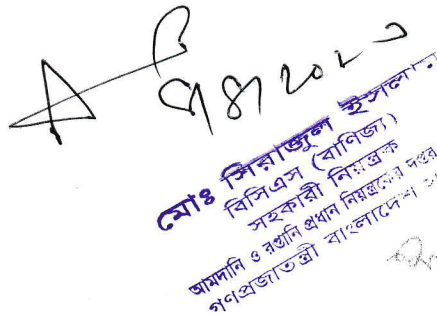 মোঃ সিরাজুল ইসলাম
বিসিএস (বাণিজ্য)
সহকারী নিয়ন্ত্রক
আমদানি ও রপ্তানি প্রধান নিয়ন্ত্রকের দপ্তর
গণপ্রজাতন্ত্রী বাংলাদেশ